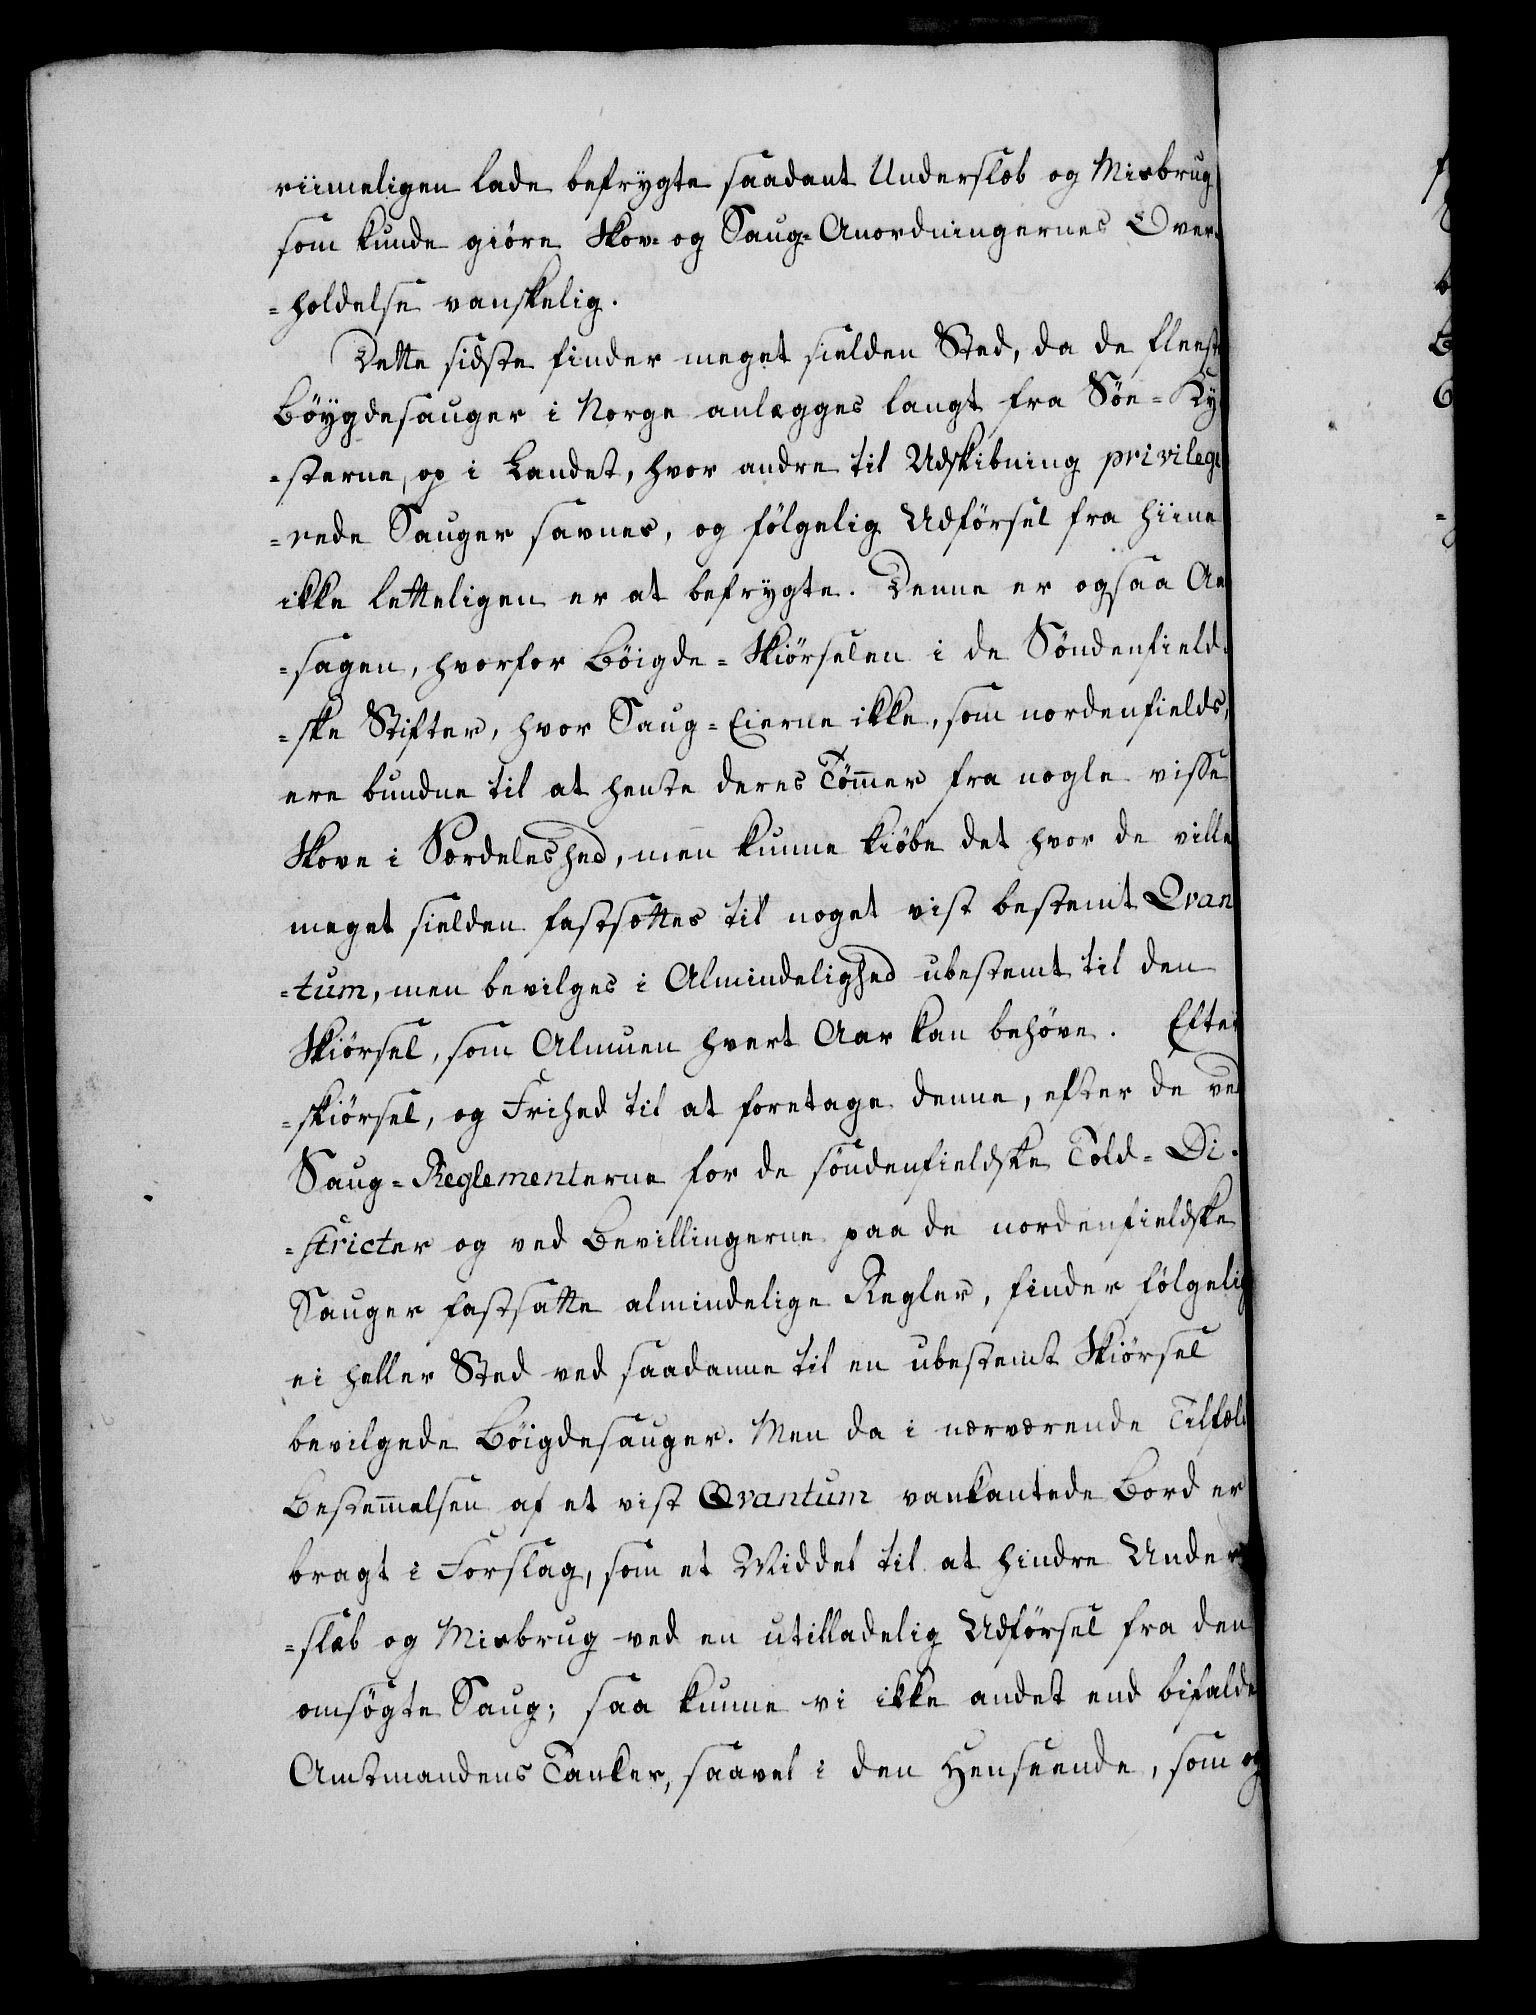 riimeligen lade befrygte saadant Underslæb og Misbrug
som kunde giöre Skov- og Saug-Anordningernes Over-
-holdelse vanskelig.
Dette sidste finder meget sielden Sted, da de fleeste
Böygdesauger i Norge anlægges langt fra Söe-Ky-
-sterne, op i Landet, hvor andre til Udskibning privilege
-rede Sauger savnes, og fölgelig Udförsel fra hiine
ikke letteligen er at befrygte. Denne er ogsaa Aar
-sagen, hvorfor Böigde-Skiörselen i de Söndenfield-
-ske Stifter, hvor Saug-Eierne ikke, som nordenfields,
ere bundne til at hente deres Tömmer fra nogle visse
Skove i Særdeleshed, men kunne kiöbe det hvor de ville
meget sielden fastsættes til noget vist bestemt Qvan
-tum, men bevilges i Almindelighed ubestemt til den
Skiörsel, som Almuen hvert Aar kan behöve. Efter
-skiörsel, og Frihed til at foretage denne, efter de ved
Saug-Reglementerne for de söndenfieldske Told-Di-
-stricter og ved Bevillingerne paa de nordenfieldske
Sauger fastsatte almindelige Regler, finder fölgelig
ei heller Sted ved saadanne til en ubestemt Skiörsel
bevilgede Böigdesauger. Men da i nærværende Tilfæld
Bestemmelsen af et vist Qvantum vankantede Bord er
bragt i Forslag, som et Middel til at hindre Under
-slæb og Misbrug ved en utilladelig Udförsel fra den
omsögte Saug; saa kunne vi ikke andet end bifalde
Amtmandens Tanker, saavel i den Henseende, som og